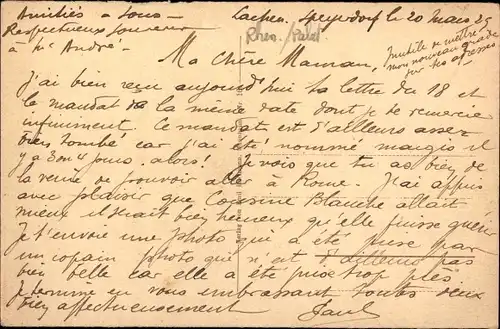 Amitiés à tous
Respectueux souvenir
à Mr André
Lachen Speyerdorf le 20 Mars 25
Rhén. Palat
Inutile de mettre
mon nouveau grade
sur tes adresses
Ma chère Maman,
J'ai bien reçu aujourd'hui ta lettre du 18 et
le mandat de la même date dont je te remercie
infiniment. Ce mandat est d'ailleurs assez
bien tombé car j'ai été nommé margis il
y a 3 ou 4 jours. alors! Je vois que tu as bien de
la veine de pouvoir aller à Rome. J'ai appris
avec plaisir que Cousine Blanche allait
mieux il serait bien heureux qu'elle puisse guérir
Je t'envoie une photo qui a été prise par
un copain photo qui n'est d'ailleurs pas
bien belle car elle a été prise trop près
Je termine en vous embrassant toutes deux
bien affectueusement
Paul